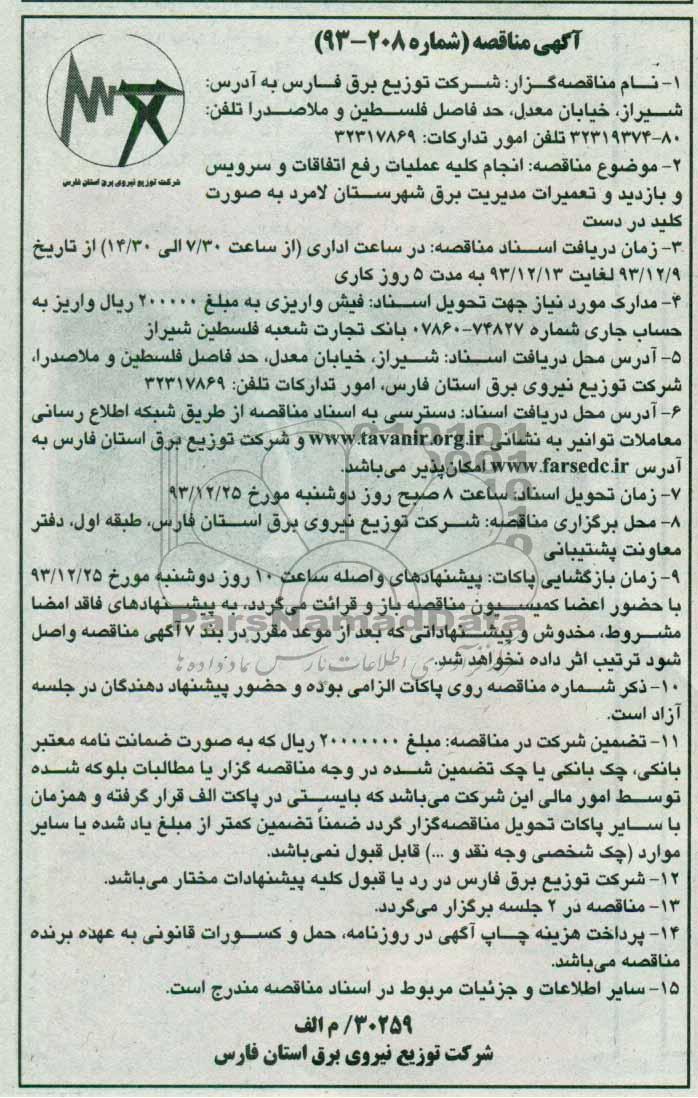 آگهی مناقصه (شماره ۲۰۸-۹۳)
شرکت توزیع نیروی برق استان فارس
۱- نام مناقصه‌گزار: شرکت توزیع برق فارس به آدرس:
شیراز، خیابان معدل، حد فاصل فلسطین و ملاصدرا تلفن:
۸۰-۳۲۳۱۹۳۷۴ تلفن امور تدارکات: ۳۲۳۱۷۸۶۹
۲- موضوع مناقصه: انجام کلیه عملیات رفع اتفاقات و سرویس
و بازدید و تعمیرات مدیریت برق شهرستان لامرد به صورت
کلید در دست
۳- زمان دریافت اسناد مناقصه: در ساعت اداری (از ساعت ۷/۳۰ الی ۱۴/۳۰) از تاریخ
۹۳/۱۲/۹ لغایت ۹۳/۱۲/۱۳ به مدت ۵ روز کاری
۴- مدارک مورد نیاز جهت تحویل اسناد: فیش واریزی به مبلغ ۲۰۰۰۰۰ ریال واریز به
حساب جاری شماره ۷۴۸۲۷-۰۷۸۶۰ بانک تجارت شعبه فلسطین شیراز
۵- آدرس محل دریافت اسناد: شیراز، خیابان معدل، حد فاصل فلسطین و ملاصدرا،
شرکت توزیع نیروی برق استان فارس، امور تدارکات تلفن: ۳۲۳۱۷۸۶۹
۶- آدرس محل دریافت اسناد: دسترسی به اسناد مناقصه از طریق شبکه اطلاع رسانی
معاملات توانیر به نشانی www.tavanir.org.ir و شرکت توزیع برق استان فارس به
آدرس www.farsedc.ir امکان‌پذیر می‌باشد.
۷- زمان تحویل اسناد: ساعت ۸ صبح روز دوشنبه مورخ ۹۳/۱۲/۲۵
۸- محل برگزاری مناقصه: شرکت توزیع نیروی برق استان فارس، طبقه اول، دفتر
معاونت پشتیبانی
۹- زمان بازگشایی پاکات: پیشنهادهای واصله ساعت ۱۰ روز دوشنبه مورخ ۹۳/۱۲/۲۵
با حضور اعضا کمیسیون مناقصه باز و قرائت می‌گردد، به پیشنهادهای فاقد امضا
مشروط، مخدوش و پیشنهاداتی که بعد از موعد مقرر در بند ۷ آگهی مناقصه واصل
شود ترتیب اثر داده نخواهد شد.
ParsNamadData
۱۰- ذکر شماره مناقصه روی پاکات الزامی بوده و حضور پیشنهاد دهندگان در جلسه
آزاد است.
۱۱- تضمین شرکت در مناقصه: مبلغ ۲۰۰۰۰۰۰۰ ریال که به صورت ضمانت نامه معتبر
بانکی، چک بانکی یا چک تضمین شده در وجه مناقصه گزار یا مطالبات بلوکه شده
توسط امور مالی این شرکت می‌باشد که بایستی در پاکت الف قرار گرفته و همزمان
با سایر پاکات تحویل مناقصه‌گزار گردد ضمناً تضمین کمتر از مبلغ یاد شده یا سایر
موارد (چک شخصی وجه نقد و ...) قابل قبول نمی‌باشد.
۱۲- شرکت توزیع برق فارس در رد یا قبول کلیه پیشنهادات مختار می‌باشد.
۱۳- مناقصه در ۲ جلسه برگزار می‌گردد.
۱۴- پرداخت هزینه چاپ آگهی در روزنامه، حمل و کسورات قانونی به عهده برنده
مناقصه می‌باشد.
۱۵- سایر اطلاعات و جزئیات مربوط در اسناد مناقصه مندرج است.
۳۰۲۵۹/ م الف
شرکت توزیع نیروی برق استان فارس